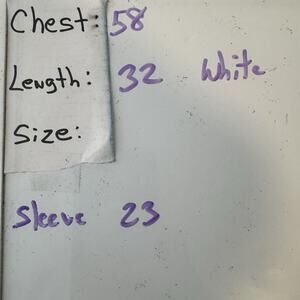 Chest: 58
Length: 32 White
Size:
Sleeve 23